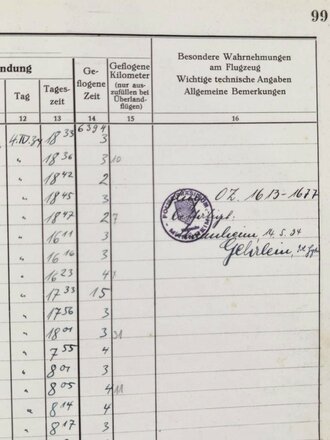 99
ndung
Tag
Tages-
zeit
Ge-
flogene
Zeit
Geflogene
Kilometer
(nur aus-
zufüllen bei
Überland-
flügen)
Besondere Wahrnehmungen
am Flugzeug
Wichtige technische Angaben
Allgemeine Bemerkungen
12 13 14 15 16
6394
18 33 3
" 18 36 3 10
" 18 42 2
" 18 45 3
" 18 47 2 7
" 16 11 3
" 16 16 3
" 16 23 4
" 17 33 15
" 17 56 3
" 18 01 3 31
" 7 55 4
" 8 01 3
" 8 05 4 11
" 8 14 4
" 8 17 3
O.Z. 1613-1677
MANNHEIM
14.5.34
Gehrlein